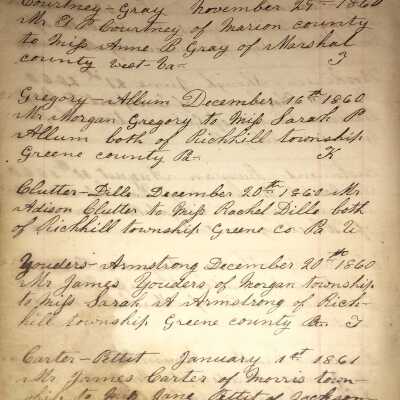 Courtney - Gray November 29th 1860
Mr T P Courtney of Marion county
to Miss Anne B Gray of Marshal
county West Va - T
Gregory - Allum December 16th 1860
Mr Morgan Gregory to Miss Sarah P
Allum both of Richhill township
Greene county Pa - K
Clutter - Dille December 20th 1860 Mr
Adison Clutter to Miss Rachel Dille both
of Richhill township Greene co Pa U
Youders - Armstrong December 20th 1860
Mr James Youders of Morgan township
to miss Sarah At Armstrong of Rich-
hill township Greene county Pa T
Carter - Pettit January 1st 1861
Mr James Carter of Morris town-
ship to Miss Jane Pettit of Jackson